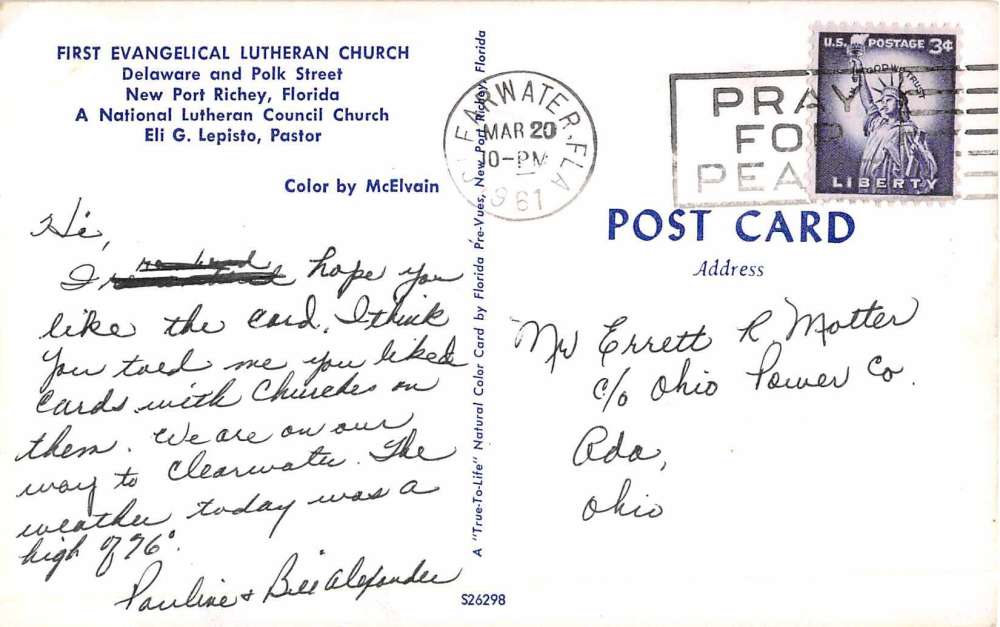 FIRST EVANGELICAL LUTHERAN CHURCH
Delaware and Polk Street
New Port Richey, Florida
A National Lutheran Council Church
Eli G. Lepisto, Pastor
Color by McElvain
Hi,
I hope you
like the card. I think
you toed me you liked
cards with Churches on
them. We are on our
way to Clearwater. The
weather today was a
high of 76°.
Pauline + Bill Alexander
A "True-To-Life" Natural Color Card by Florida Pre-Vues, New Port Richey, Florida
S26298
CLEARWATER, FLA
MAR 20
10-PM
1961
PRAY
FOR
PEA
U.S. POSTAGE 3¢
IN GOD WE TRUST
LIBERTY
POST CARD
Address
Mr Errett R Motter
c/o Ohio Power Co.
Ada,
Ohio